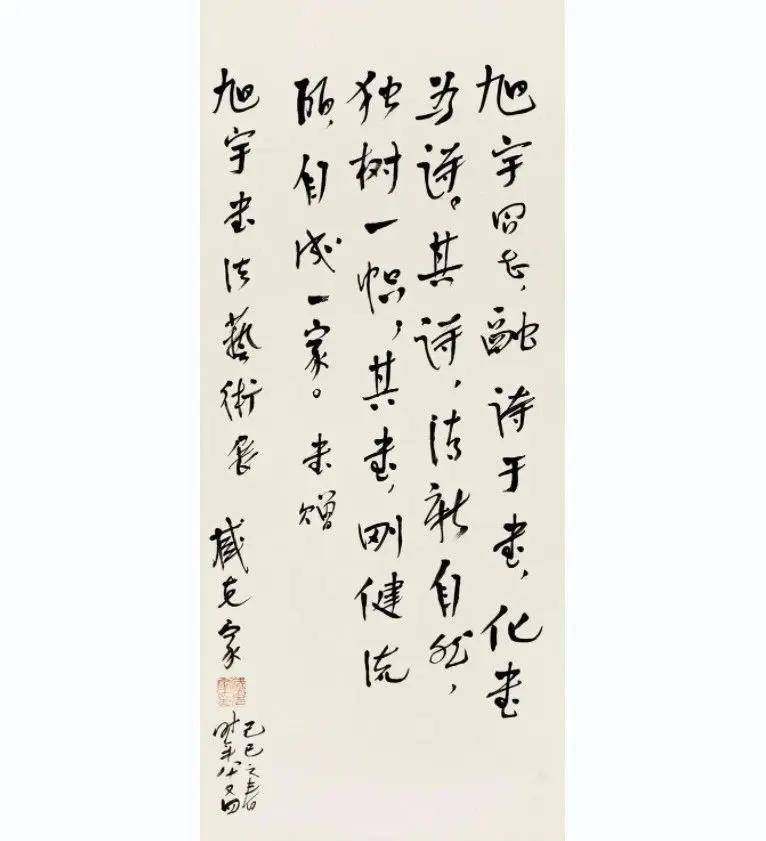 旭宇同志,融诗于书,化书
为诗。其诗,清新自然,
独树一帜,其书,刚健流
丽,自成一家。书赠
旭宇书法藝術展 臧克家
己巳之春
时年八又四